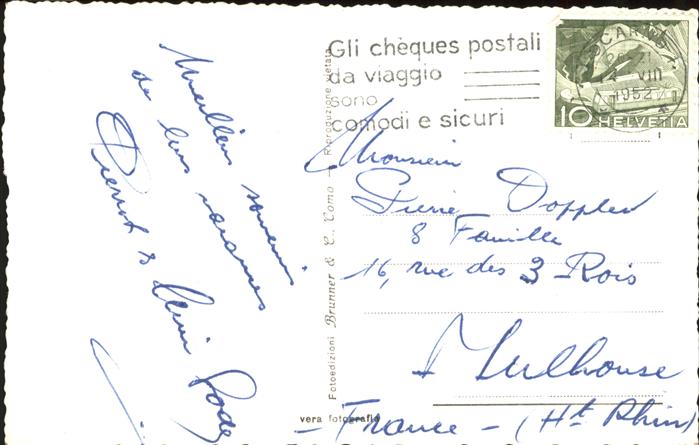 Meilleurs souvenirs
de leurs vacances
Pierrot &
Gli chèques postali
da viaggio
sono
comodi e sicuri
LOCARNO 1
VIII
1952
10 HELVETIA
Monsieur
Pierre Doppler
& Famille
16, rue des 3 Rois
Mulhouse
- France - (Ht Rhin)
Fotoedizioni Brunner & C., Como - Riproduzione vietata
vera fotografia